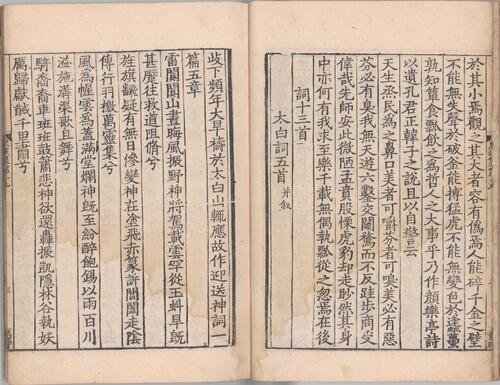 於其小焉觀之其大者容有偽焉人能碎千金之璧
不能無失聲於破釜能搏猛虎不能無變色於蜂蠆
孰知簞食瓢飲之為哲人之大事乎乃作顏樂亭詩
以遺孔君正韓子之說且以自警云
天生烝民為之鼻口美者可嚼芬者可嗅美必有惡
芬必有臭我無天遊六鑿交鬭騖而不反跬步商受
偉哉先師安此微陋孟賁股慄虎豹却走眇然其身
中亦何有我求至樂千載無偶執瓢從之忽焉在後
詞十三首
太白詞五首 并叙
岐下頻年大旱禱於太白山輒應故作迎送神詞一
篇五章
雷闐闐山晝晦風振野神將駕載雲罕從玉虯旱既
甚蹷往救道阻脩兮
旌旗翻疑有無日慘變神在塗飛赤篆訴閶闔走陰
符行羽檄萬靈集兮
風為幄雲為蓋滿堂爛神既至紛醉飽錫以雨百川
溢施溝渠歌且舞兮
騎裔裔車班班鼓簫悲神欲還轟振凱隱林谷執妖
厲歸獻馘千里肅兮